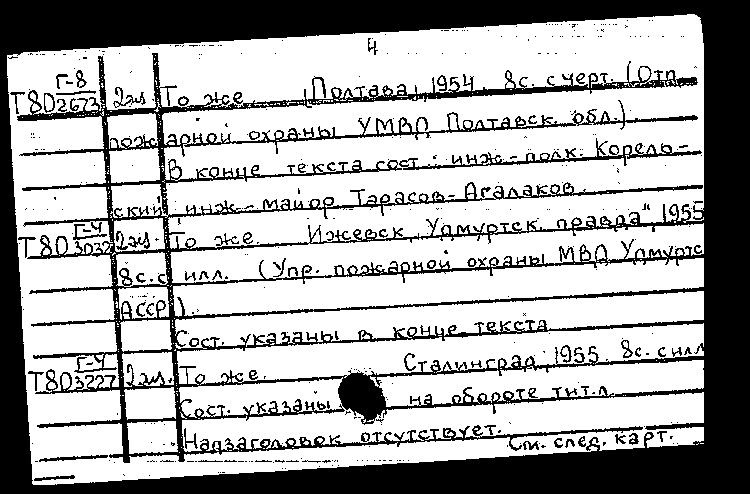 4
Г-8
Т80 2673 2эк. То же. (Полтава), 1954. 8с. с черт. (Отп.
пожарной охраны УМВД Полтавск. обл.).
В конце текста сост.: инж-полк. Корель-
ский, инж-майор Тарасов-Агалаков.
Г-4
Т80 3032 2эк. То же. Ижевск, "Удмуртск. правда", 1955
8с. с илл. (Упр. пожарной охраны МВД Удмуртс
АССР).
Сост. указаны в конце текста
Г-4
Т80 3227 2эк. То же. Сталинград, 1955. 8с. с илл
Сост. указаны на обороте тит.л.
Надзаголовок отсутствует. См. след. карт.